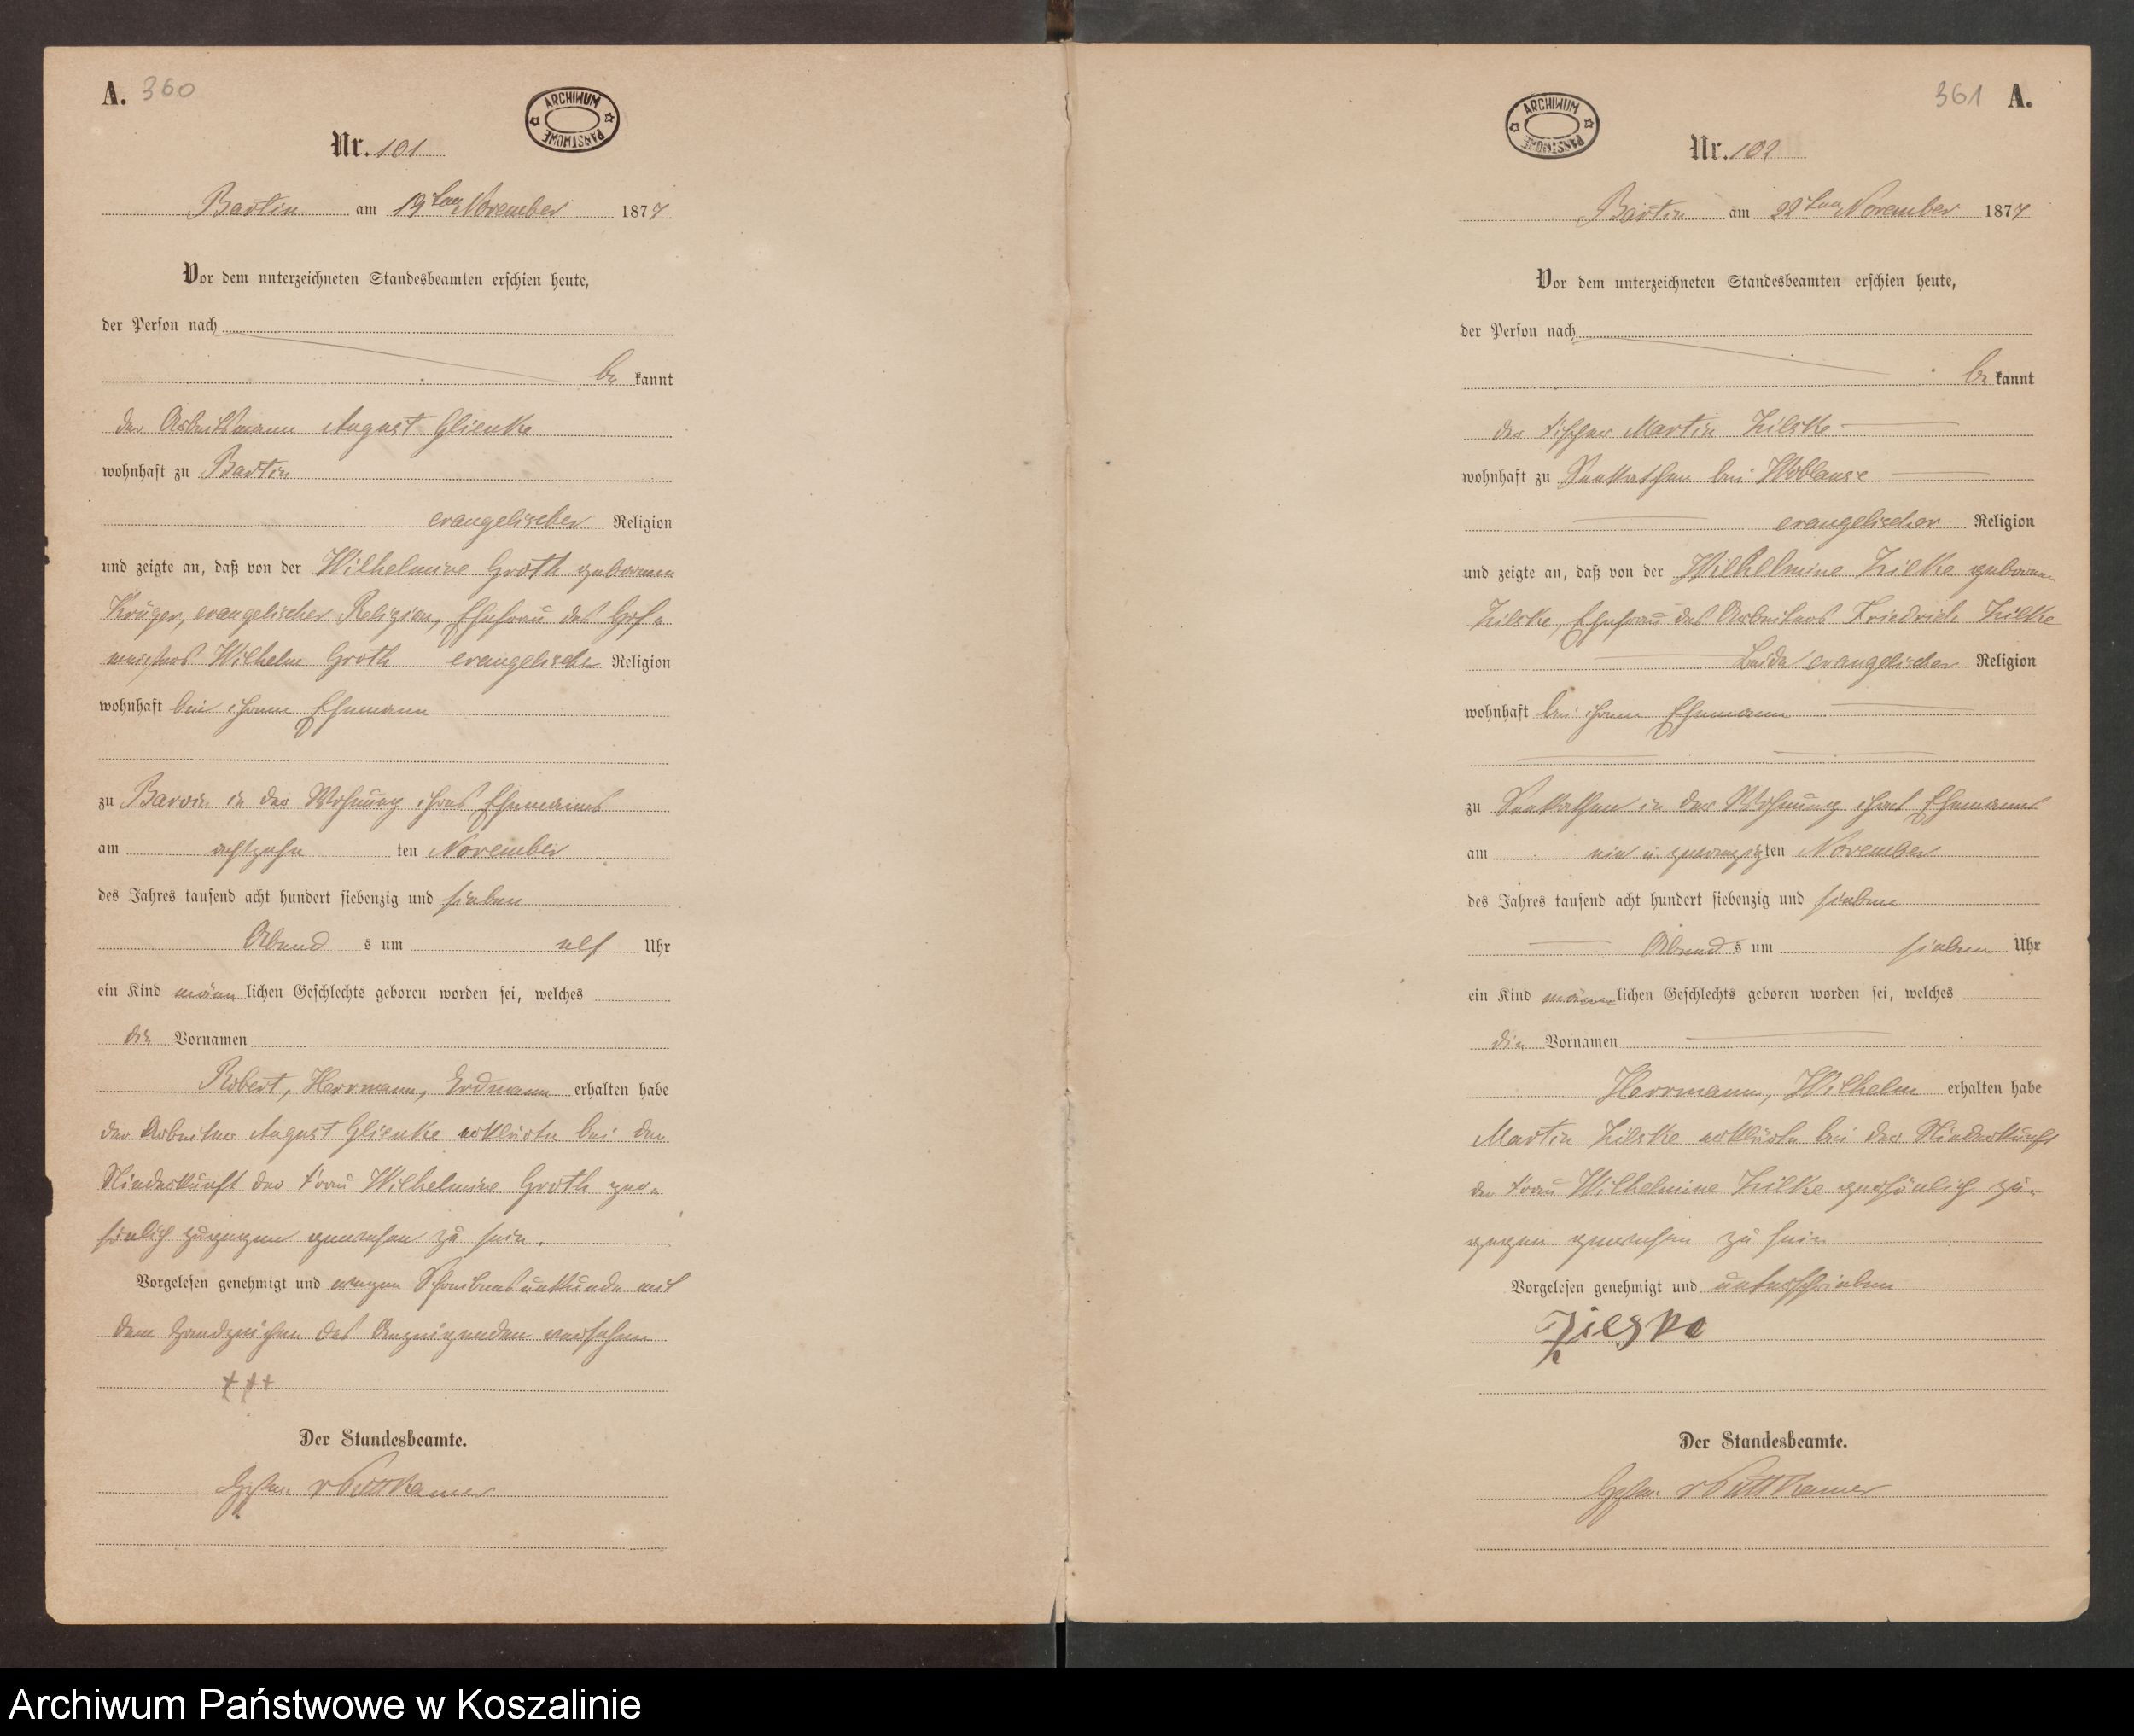 A. 360
ARCHIWUM PAŃSTWOWE
Nr. 101
Bartin am 19ten November 1877
Vor dem unterzeichneten Standesbeamten erschien heute,
der Person nach
be kannt
der Arbeitsmann August Glienke
wohnhaft zu Bartin
evangelischer Religion
und zeigte an, daß von der Wilhelmine Groth geborenen
Krüger, evangelischer Religion, Ehefrau des Hof-
meisters Wilhelm Groth evangelischer Religion
wohnhaft bei ihrem Ehemann
zu Barvin in der Wohnung ihres Ehemannes
am achtzehn ten November
des Jahres tausend acht hundert siebenzig und sieben
Abend s um elf Uhr
ein Kind männ lichen Geschlechts geboren worden sei, welches
die Vornamen
Robert, Herrmann, Erdmann erhalten habe
der Arbeiter August Glienke erklärte bei der
Niederkunft der Frau Wilhelmine Groth per-
sönlich zugegen gewesen zu sein.
Vorgelesen genehmigt und wegen Schreibensunkunde mit
dem Handzeichen des Anzeigenden versehen
+++
Der Standesbeamte.
v Puttkamer
361 A.
ARCHIWUM PAŃSTWOWE
Nr. 102
Bartin am 22ten November 1877
Vor dem unterzeichneten Standesbeamten erschien heute,
der Person nach
be kannt
der Fischer Martin Zilske
wohnhaft zu Seekathen bei Woblanse
evangelischer Religion
und zeigte an, daß von der Wilhelmine Zilke geborene
Zilske, Ehefrau des Arbeiters Friedrich Zilke
Beide evangelischer Religion
wohnhaft bei ihrem Ehemann
zu Seekathen in der Wohnung ihres Ehemannes
am ein u zwanzig ten November
des Jahres tausend acht hundert siebenzig und sieben
Abend s um sieben Uhr
ein Kind männ lichen Geschlechts geboren worden sei, welches
die Vornamen
Herrmann, Wilhelm erhalten habe
Martin Zilske erklärte bei der Niederkunft
der Frau Wilhelmine Zilke persönlich zu-
gegen gewesen zu sein
Vorgelesen genehmigt und unterschrieben
Zielske
Der Standesbeamte.
v Puttkamer
Archiwum Państwowe w Koszalinie